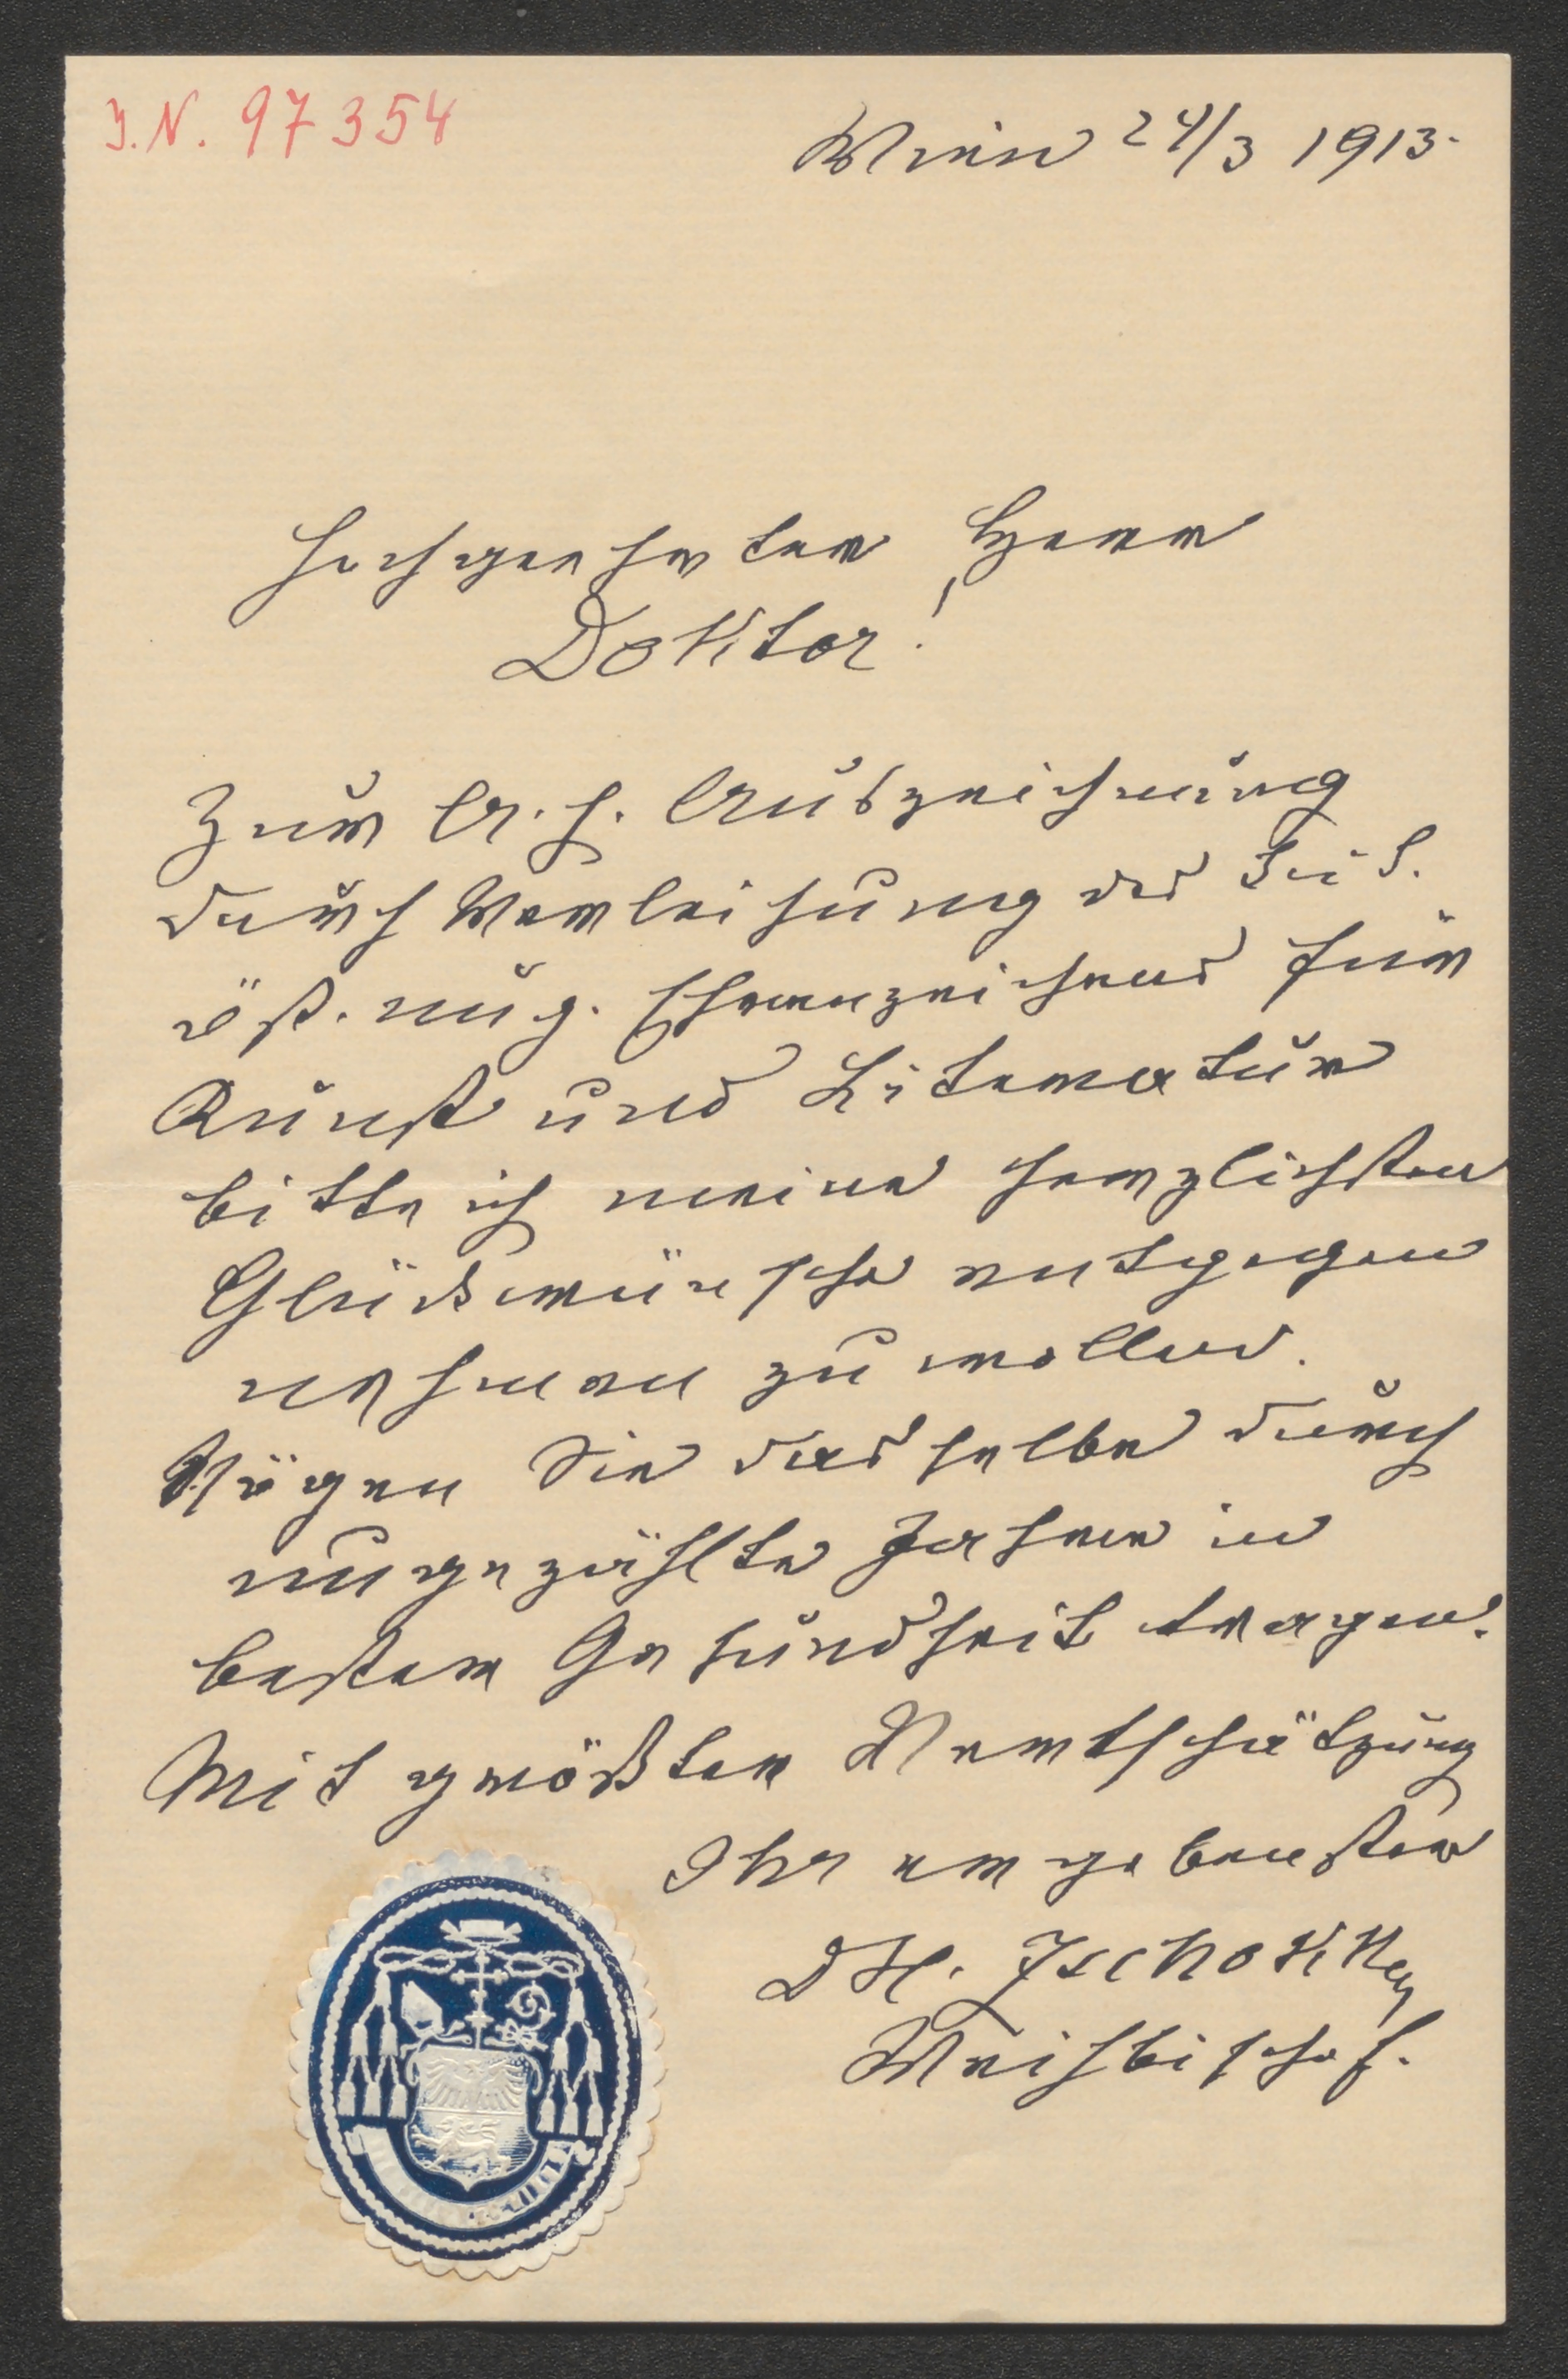 I.N. 97354
Wien 24/3 1913.
Hochgeehrter Herr
Doktor!
Zur A. h. Auszeichnung
durch Verleihung des
öst. ung. Ehrenzeichens für
Kunst und Literatur
bitte ich meine herzlichsten
Glückwünsche entgegen
nehmen zu wollen.
Mögen Sie dasselbe durch
ungezählte Jahre in
bester Gesundheit tragen.
Mit größter Wertschätzung
Ihr ergebenster
Dr H. Zschokke
Weihbischof.